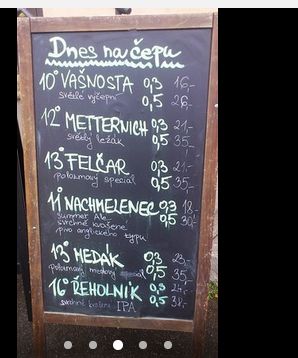 Dnes na čepu
10° VAŠNOSTA 0,3 16,-
světlé výčepní 0,5 26,-
12° METTERNICH 0,3 21,-
světlý ležák 0,5 35,-
13° FELČAR 0,3 21,-
polotmavý speciál 0,5 35,-
11° NACHMELENEC 0,3 18,-
Summer Ale 0,5 30,-
svrchně kvašené
pivo anglického typu
13° MEDÁK 0,3 23,-
polotmavý medový speciál 0,5 35,-
16° ŘEHOLNÍK 0,3 24,-
svrchně kvašené IPA 0,5 38,-